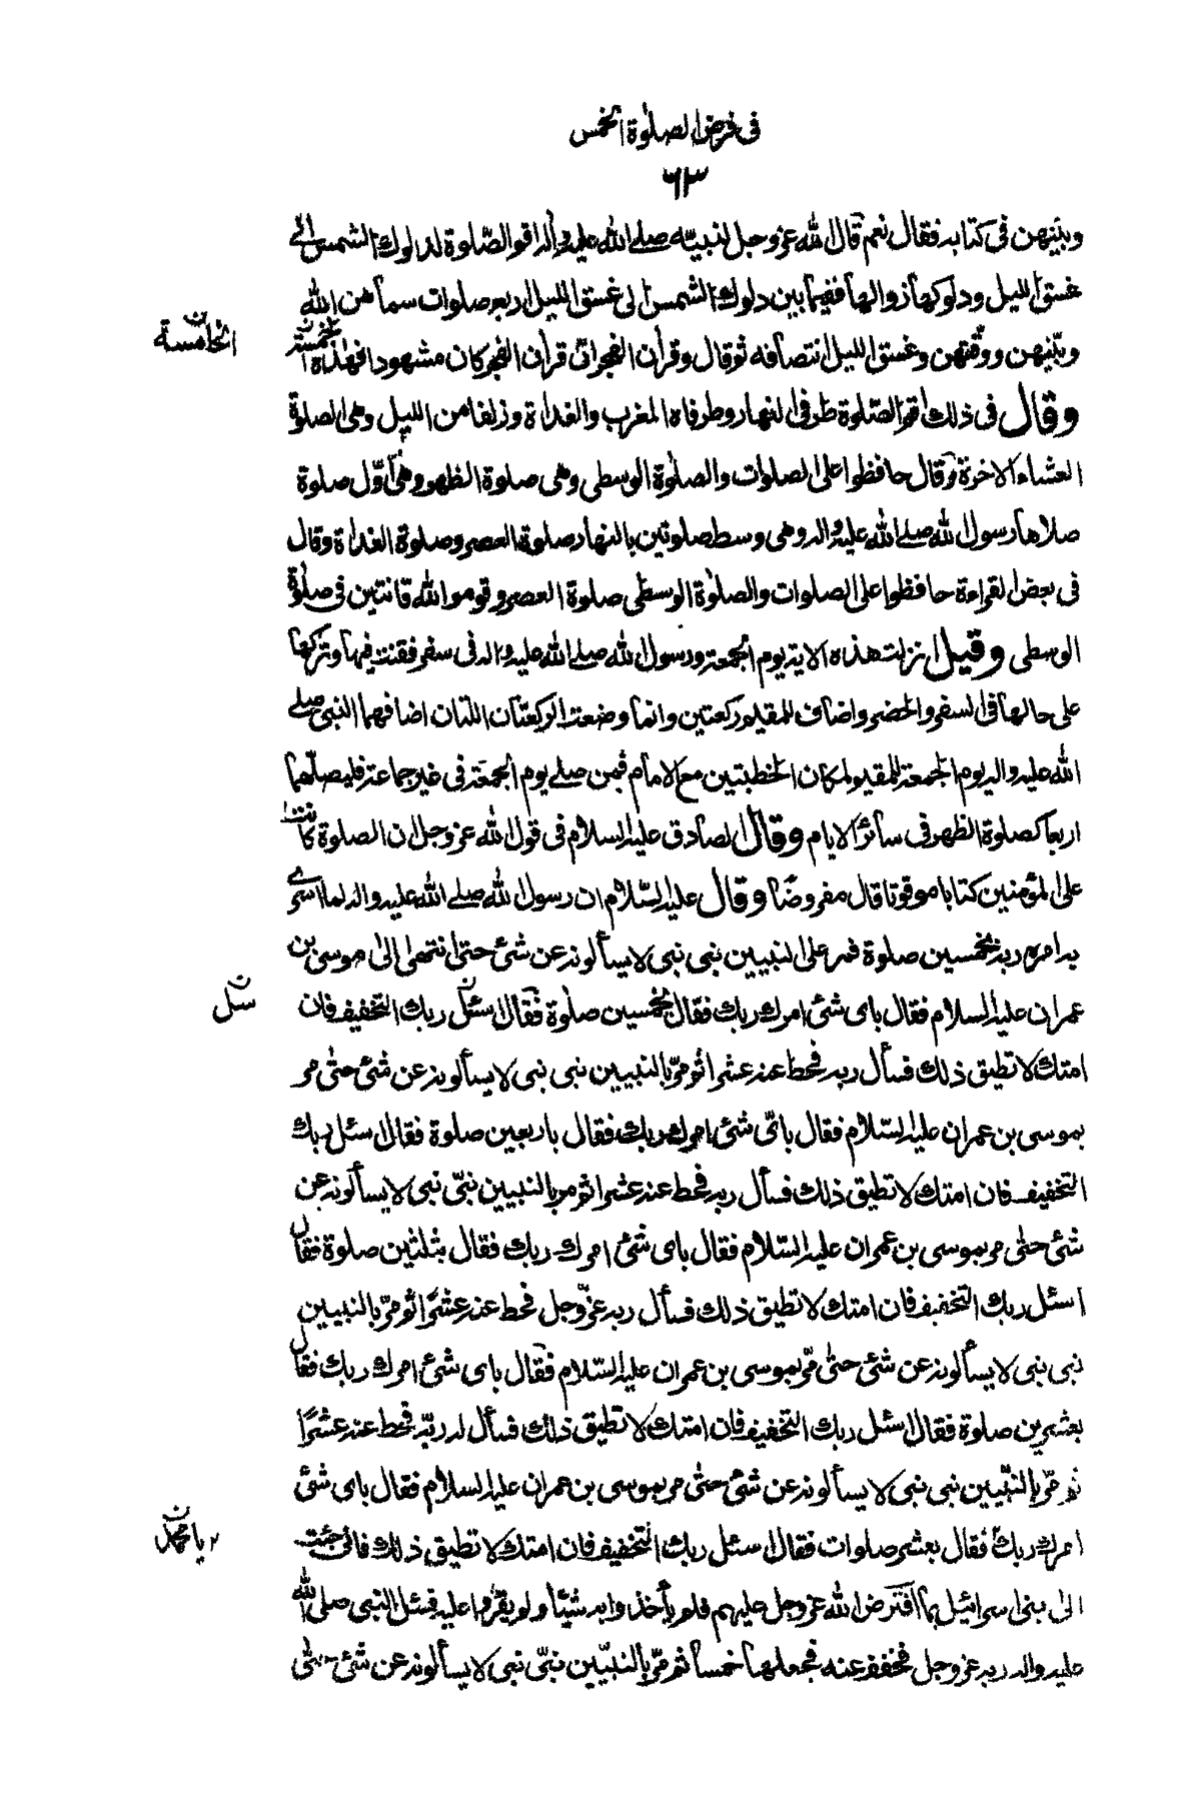 فى فرض الصلوٰة الخمس
٦٣
وبيّنهن فى كتابه فقال نعم قال الله عز وجل لنبيّه صلے الله عليه واله اقم الصّلوة لدلوك الشمس الى
غسق الليل ودلوكها زوالها ففيما بين دلوك الشمس الى غسق الليل اربع صلوات سماهن الله
وبيّنهن ووقّتهن وغسق الليل انتصافه ثم قال وقرآن الفجر ان قرآن الفجر كان مشهودا فهذه الخمسة
الخامسة ن
وقال فى ذلك اقم الصّلوة طرفى النهار وطرفاه المغرب والغداة وزلفا من الليل وهى الصلوة
العشاء الاخرة وقال حافظوا على الصلوات والصلوٰة الوسطى وهى صلوة الظهر وهى اوّل صلوة
صلاها رسول الله صلے الله عليه واله وهى وسط صلوتين بالنهار صلوة العصر وصلوة الغداة وقال
فى بعض القراءة حافظوا على الصلوات والصلوٰة الوسطى صلوة العصر وقوموا لله قانتين فى صلوٰة
الوسطى وقيل انزلت هذه الاية يوم الجمعة ورسول الله صلے الله عليه واله فى سفر فقنت فيها وتركها
على حالها فى السفر والحضر واضاف للمقيم ركعتين وانما وضعت الركعتان اللتان اضافهما النبى صلے
الله عليه واله يوم الجمعة للمقيم لمكان الخطبتين مع الامام فمن صلے يوم الجمعة فى غير جماعة فليصلّها
اربعا كصلوة الظهر فى سائر الايام وقال الصادق عليه السلام فى قول الله عز وجل ان الصلوة كانت
على المؤمنين كتابا موقوتا قال مفروضا وقال عليه السّلام ان رسول الله صلے الله عليه واله لما اسرے
به امره ربه بخمسين صلوة فمر على النبيين نبى نبى لا يسألونه عن شئ حتى انتهى الى موسى بن
عمران عليه السلام فقال باى شئ امرك ربك فقال بخمسين صلوٰة فقال اسئل ربك التخفيف فان
سئل ن
امتك لا تطيق ذلك فسأل ربه فحط عنه عشرا ثم مرّ بالنبيين نبى نبى لا يسألونه عن شئ حتٰى مر
بموسى بن عمران عليه السّلام فقال باىّ شئ امرك ربك فقال باربعين صلوة فقال اسئل ربك
التخفيف فان امتك لا تطيق ذلك فسأل ربه فحط عنه عشرا ثم مر بالنبيين نبىّ نبى لا يسألونه عن
شئ حتٰى مر بموسى بن عمران عليه السّلام فقال باى شئ امرك ربك فقال بثلثين صلوة فقال
اسئل ربك التخفيف فان امتك لا تطيق ذلك فسأل ربه عزّ وجل فحط عنه عشرًا ثم مرّ بالنبيين
نبى نبى لا يسألونه عن شئ حتٰى مرّ بموسى بن عمران عليه السّلام فقال باى شئ امرك ربك فقال
بعشرين صلوة فقال اسئل ربك التخفيف فان امتك لا تطيق ذلك فسأل له ربّه فحط عنه عشرًا
ثم مرّ بالنبّيين نبى نبى لا يسألونه عن شئ حتٰى مر بموسى بن عمران عليه السلام فقال باى شئ
امرك ربك فقال بعشر صلوات فقال اسئل ربك التخفيف فان امتك لا تطيق ذلك فانى جئت
٢ يا محمد ن
الى بنى اسرائيل بما افترض الله عز وجل عليهم فلم يأخذوا به شيئا ولم يقرّوا عليه فسئل النبى صلى الله
عليه واله ربه عز وجل فخفف عنه فجعلها خمسا ثم مرّ بالنبيّين نبىّ نبى لا يسألونه عن شئ حتٰى